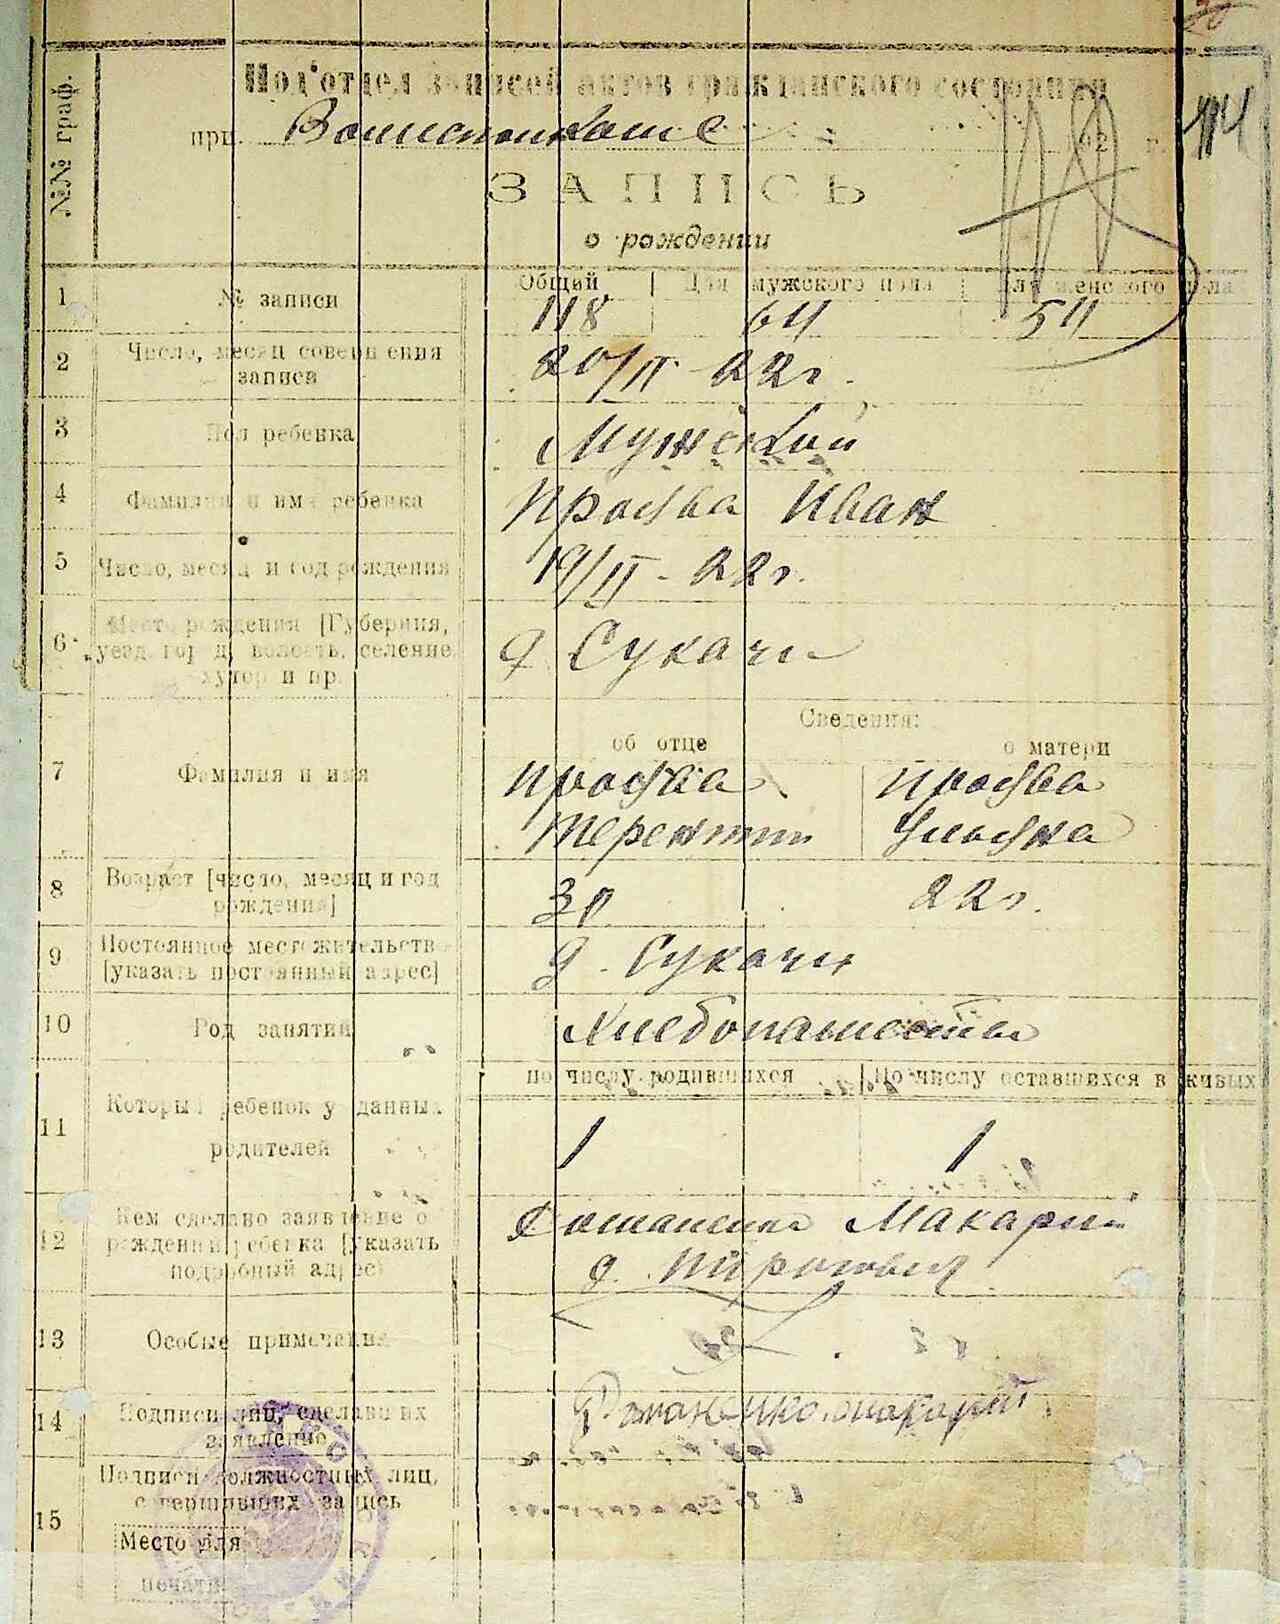 №№ граф.
Под'отдел Записей актов гражданского состояния
при 192 г. 114
ЗАПИСЬ
о рождении
Общий | Для мужского пола | Для женского пола
1 № записи 118 64 54
2 Число, месяц совершения
записи 20/II - 22 г.
3 Пол ребенка Мужской
4 Фамилия и имя ребенка Иван
5 Число, месяц и год рождения 19/II - 22 г.
6 Место рождения [Губерния,
уезд, город, волость, селение,
хутор и пр. д Сукачи
Сведения:
об отце о матери
7 Фамилия и имя
Терентий Ульяна
8 Возраст [число, месяц и год
рождения] 30 22 г.
9 Постоянное местожительство
[указать постоянный адрес] д. Сукачи
10 Род занятий Хлебопашество
по числу родившихся | По числу оставшихся в живых
11 Который ребенок у данных
родителей 1 1
12 Кем сделано заявление о
рождении ребенка [указать
подробный адрес] Романенко Макарий
д.
13 Особые примечания
14 Подписи лиц, сделавших
заявление Романенко Макарий
15 Подписи должностных лиц,
совершивших запись
Место для
печати